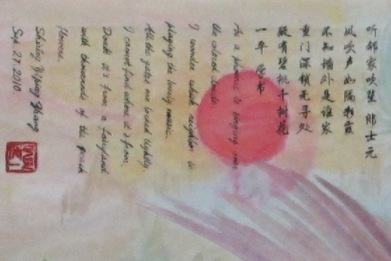 听邻家吹笙 郎士元
风吹声如隔彩霞
不知墙外是谁家
重门深锁无寻处
疑有碧桃千树花
As a phoenix is singing over
the colorful clouds.
I wonder which neighbor is
playing the lovely music.
All the gates are locked tightly,
I cannot find where it's from.
Doubt it's from a fairyland
with thousands of the peach
flowers.
Shirley Yiping Zhang
Sep. 27, 2010